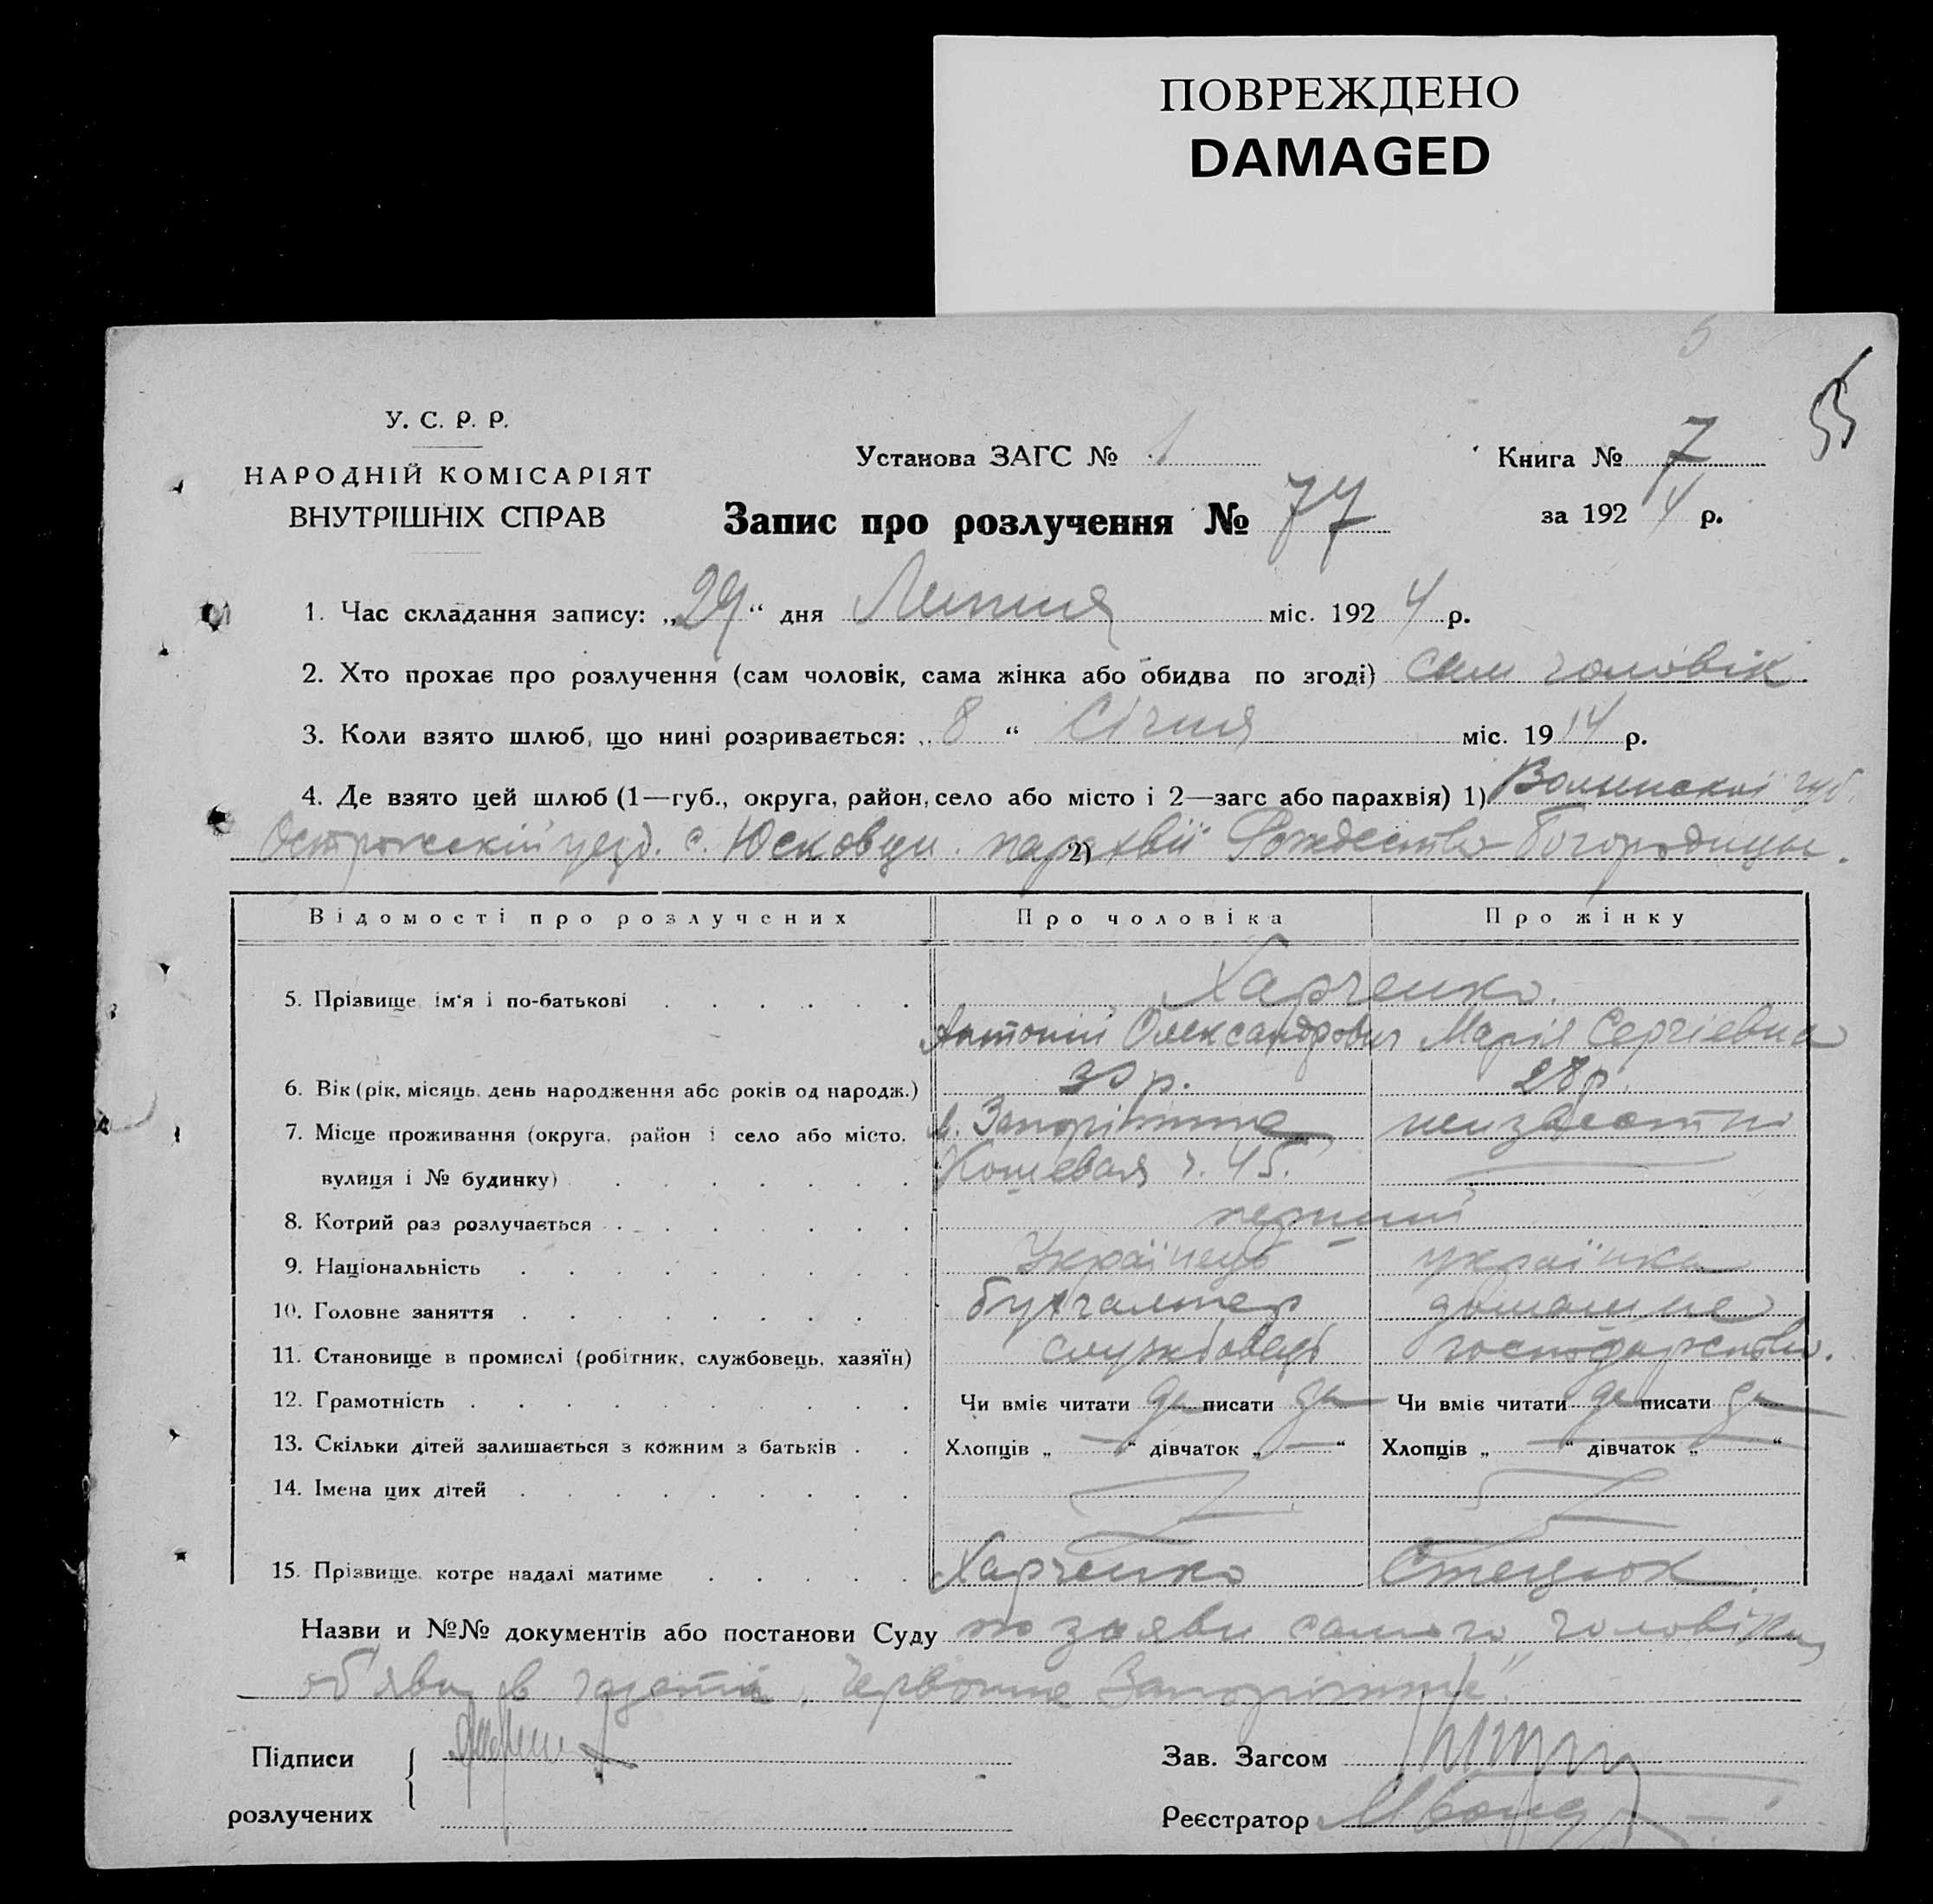 ПОВРЕЖДЕНО
DAMAGED
55
У. С. Р. Р.
НАРОДНІЙ КОМІСАРІЯТ
ВНУТРІШНІХ СПРАВ
Установа ЗАГС № 1
Книга № 7
за 1924 р.
Запис про розлучення № 77
1. Час складання запису: „29“ дня Липня міс. 1924 р.
2. Хто прохає про розлучення (сам чоловік, сама жінка або обидва по згоді) сам чоловік.
3. Коли взято шлюб, що нині розривається: „8“ Січня міс. 1914 р.
4. Де взято цей шлюб (1—губ., округа, район, село або місто і 2—загс або парахвія) 1) Волинскої губ.
Острожскій уезд. с. Юсковци. 2) парахвії Рождества Богородицы.
Відомості про розлучених Про чоловіка Про жінку
5. Прізвище ім'я і по-батькові Харченко.
Антоній Олександрович Марія Сергієвна
6. Вік (рік, місяць, день народження або років од народж.) 30 р. 28 р.
7. Місце проживання (округа, район і село або місто, м. Запоріжжє неизвестні
вулиця і № будинку) Кошевая ч. 45.
8. Котрий раз розлучається перший
9. Національність Українець українка
10. Головне заняття бухгалтер домашнє
11. Становище в промислі (робітник, службовець, хазяїн) службовець господарство.
12. Грамотність Чи вміє читати да писати да Чи вміє читати да писати да
13. Скільки дітей залишається з кожним з батьків Хлопців „ — “ дівчаток „ — “ Хлопців „ — “ дівчаток „ — “
14. Імена цих дітей
15. Прізвище, котре надалі матиме Харченко Стецюк
Назви и №№ документів або постанови Суду по заяви самого чоловіка,
об'яви в газеті „Червонне Запоріжжє“.
Підписи
розлучених
Зав. Загсом
Реєстратор